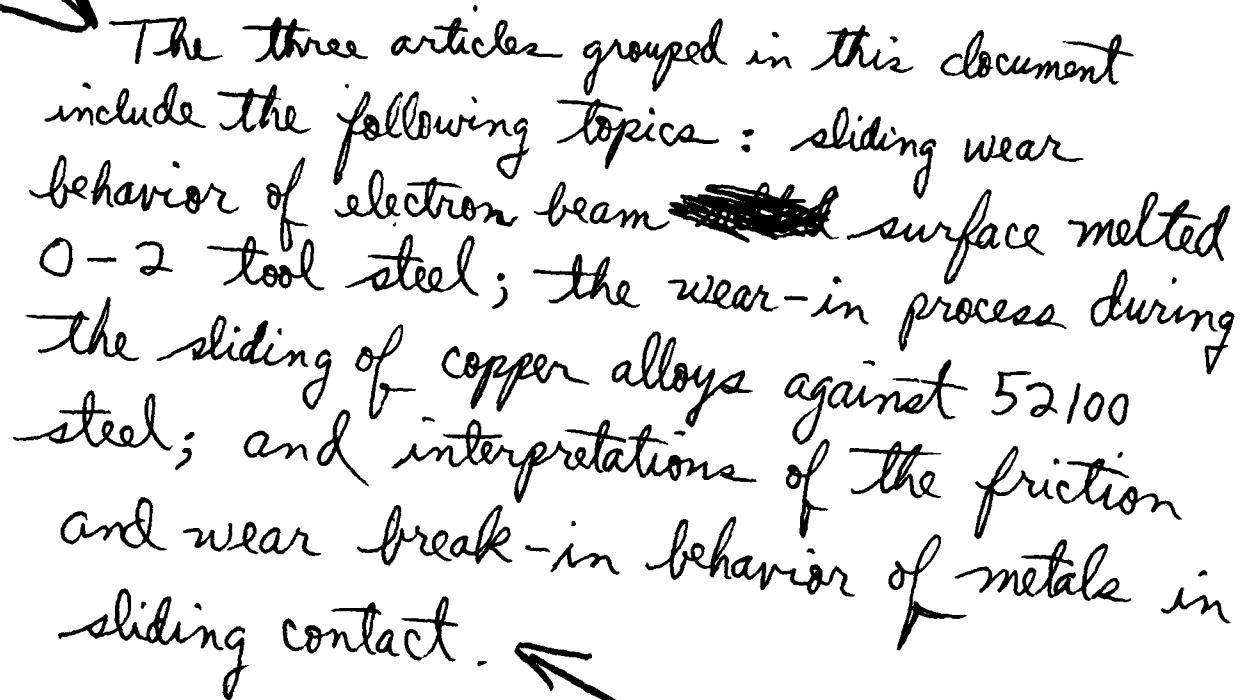 The three articles grouped in this document
include the following topics: sliding wear
behavior of electron beam surface melted
0-2 tool steel; the wear-in process during
the sliding of copper alloys against 52100
steel; and interpretations of the friction
and wear break-in behavior of metals in
sliding contact.